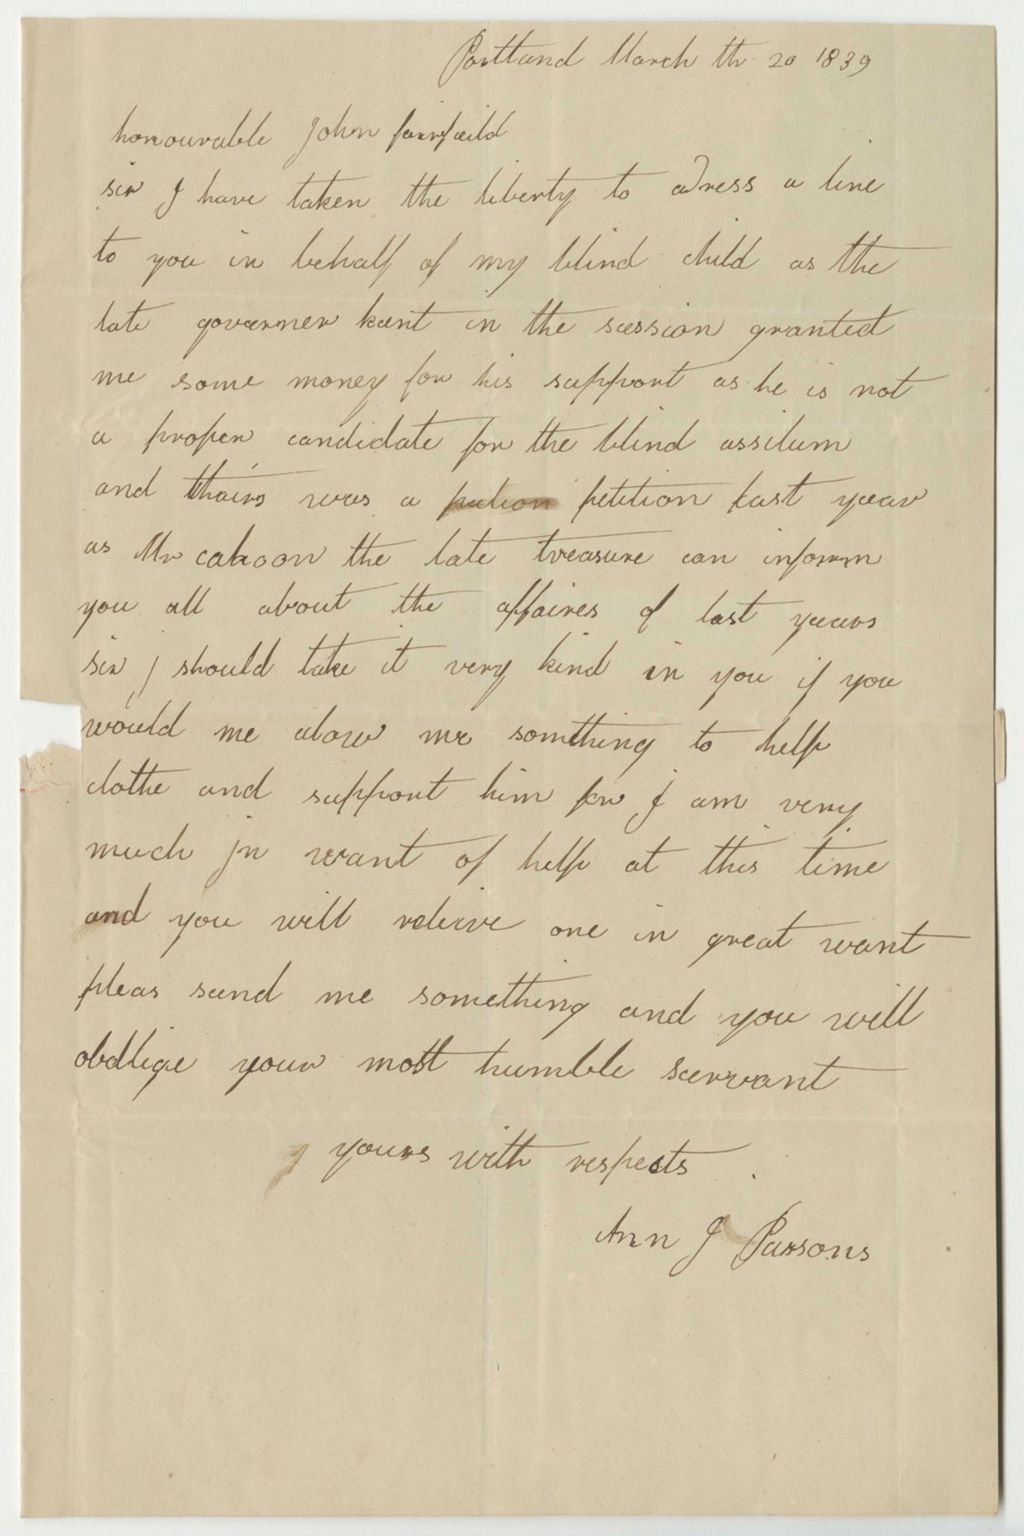 Portland March th 20 1839
honourable John fairfeild
sir I have taken the liberty to adress a line
to you in behalf of my blind child as the
late governer kent in the session granted
me some money for his support as he is not
a proper candidate for the blind assilum
and thairs was a petition last year
as Mr cahoon the late treasure can inform
you all about the affaires of last years
sir j should take it very kind in you if you
would me alow me something to help
clothe and support him for I am very
much jn want of help at this time
and you will releive one in great want
pleas send me something and you will
obdlige your most humble servant
yours with respects
Ann J Parsons